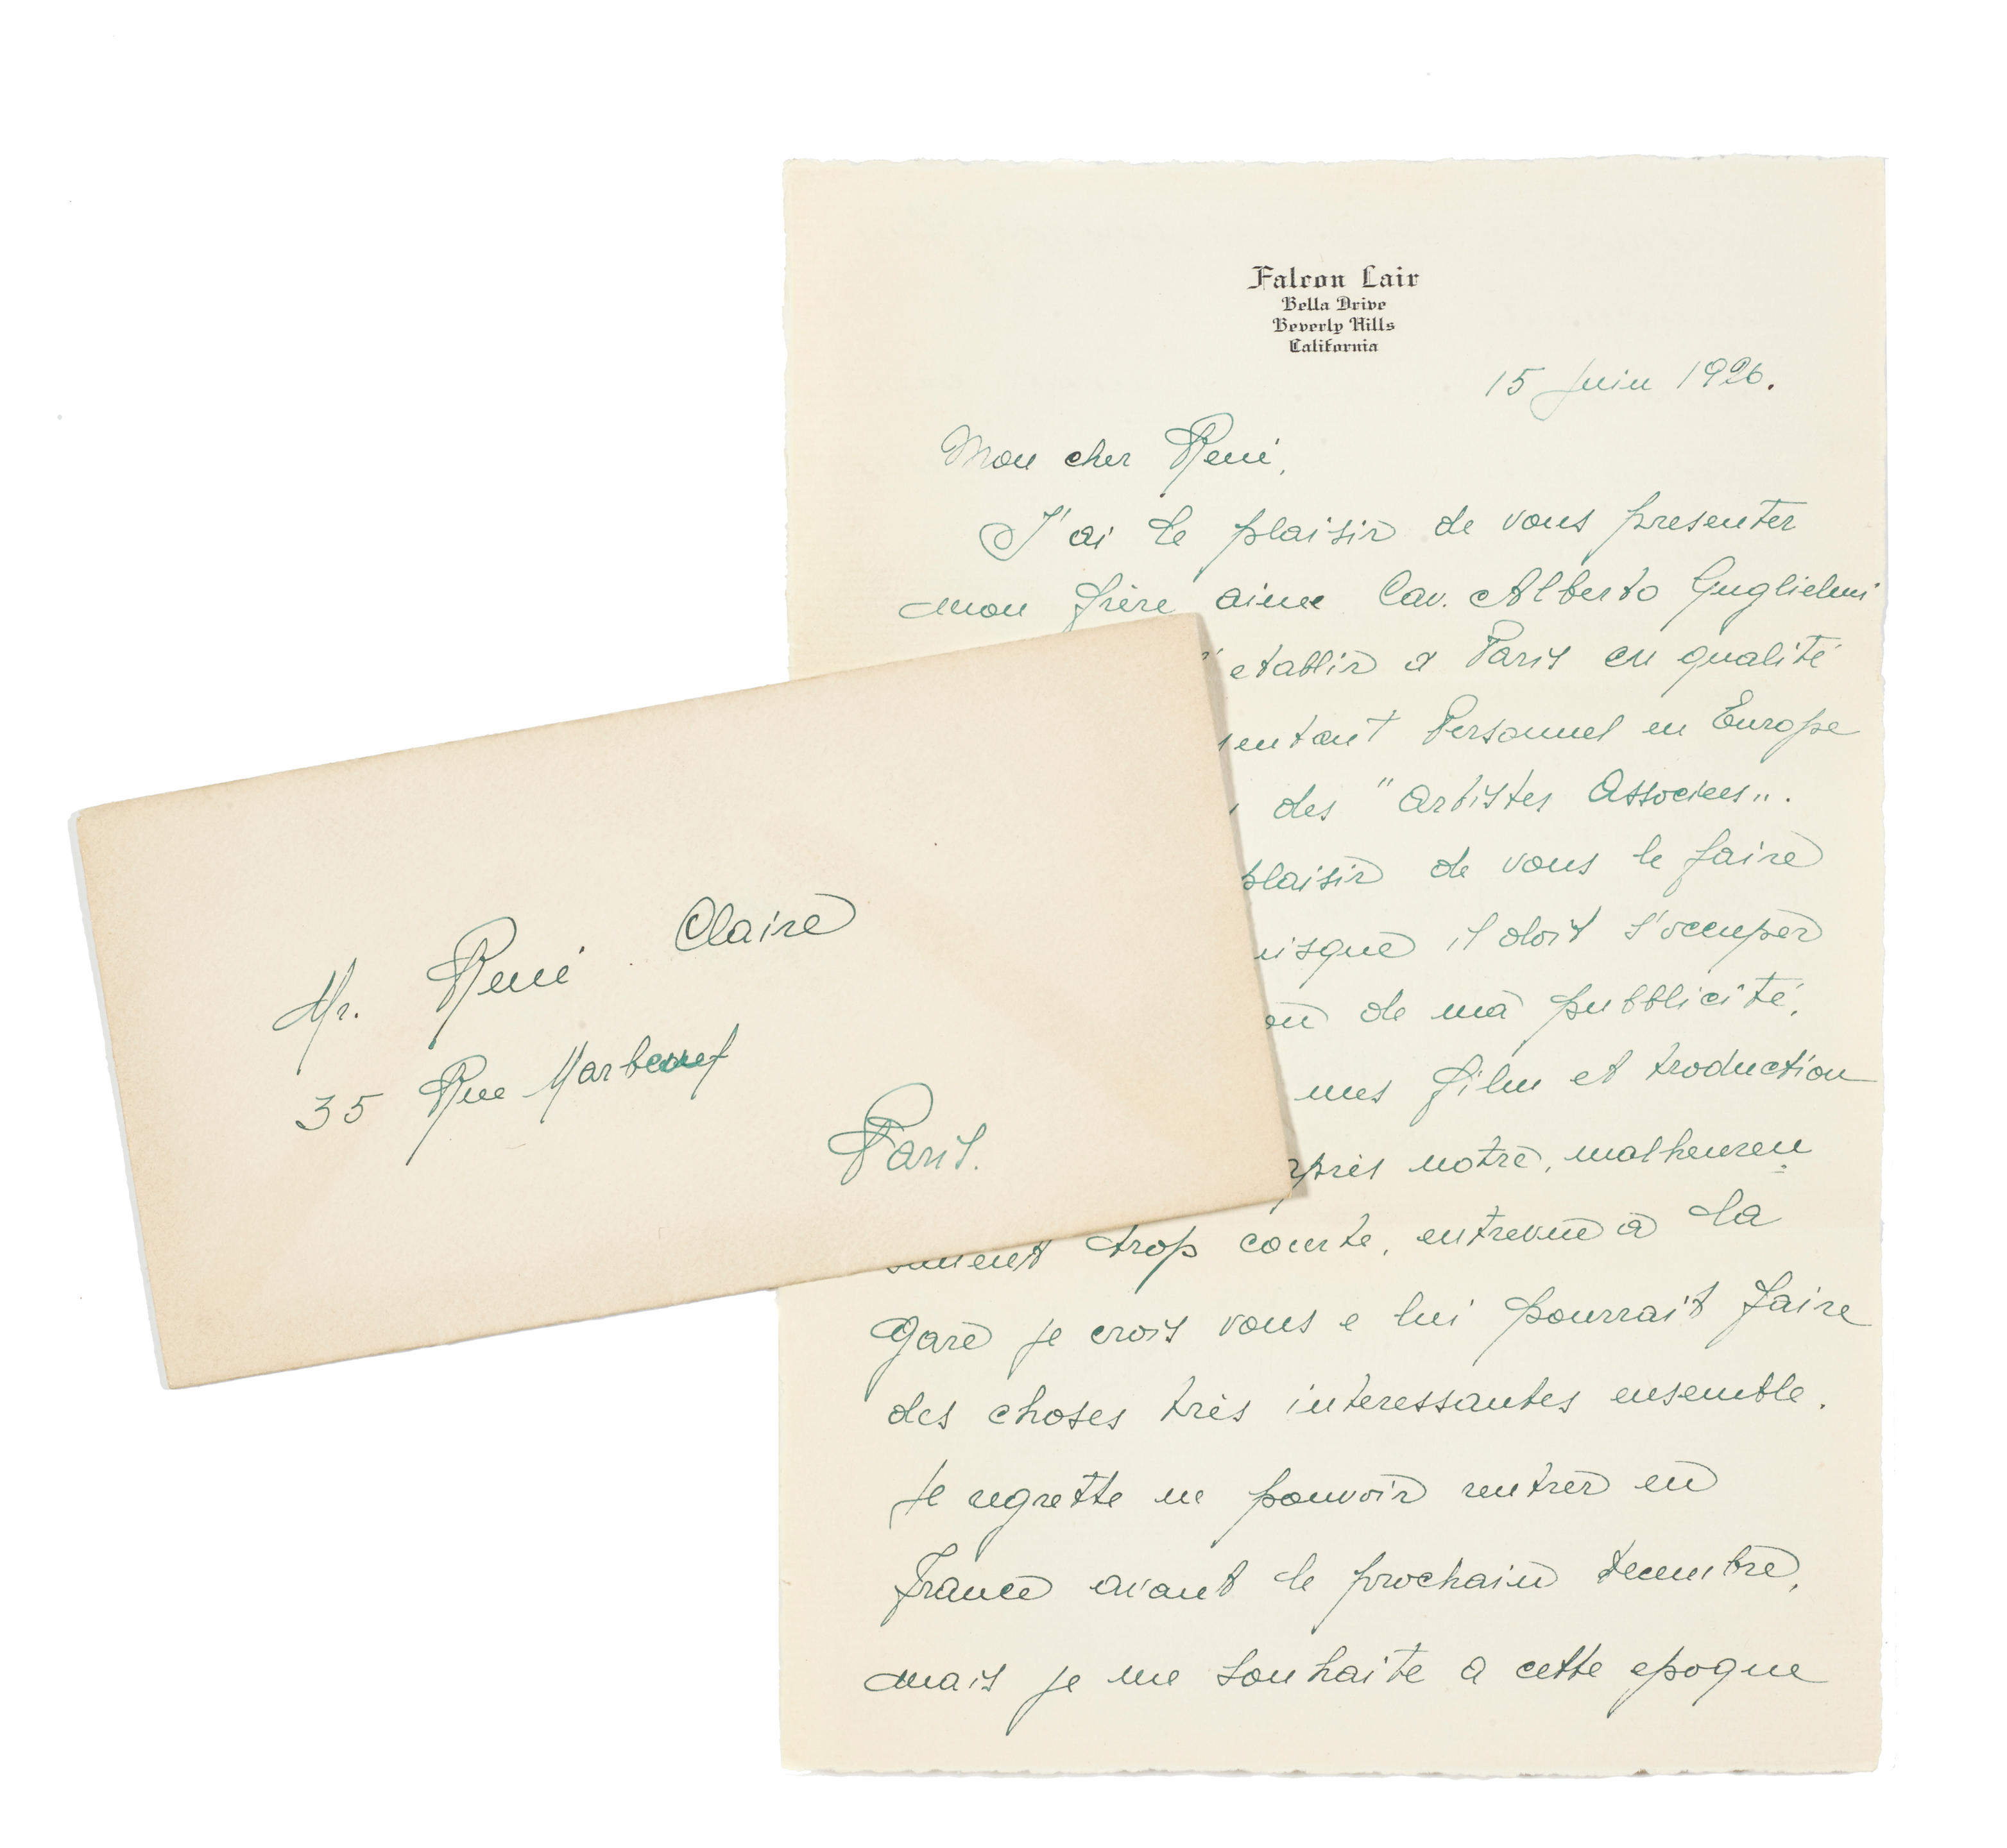 Falcon Lair
Bella Drive
Beverly Hills
California
15 Juin 1926.
Mon cher René,
J'ai le plaisir de vous presenter
mon frère ainee Cav. Alberto Guglielmi
etablir a Paris en qualité
Personnel en Europe
des "Artistes Associees".
plaisir de vous le faire
il doit s'occuper
de ma pubblicité,
mes film et production
notre, malheureu
trop courte, entrevue à la
Gare je crois vous e lui pourrait faire
des choses très interessantes ensemble.
Je regrette ne pouvoir rentrer en
France avant le prochain
mais je me souhaite a cette epoque
Mr. René Claire
35 Rue Marbeuf
Paris.